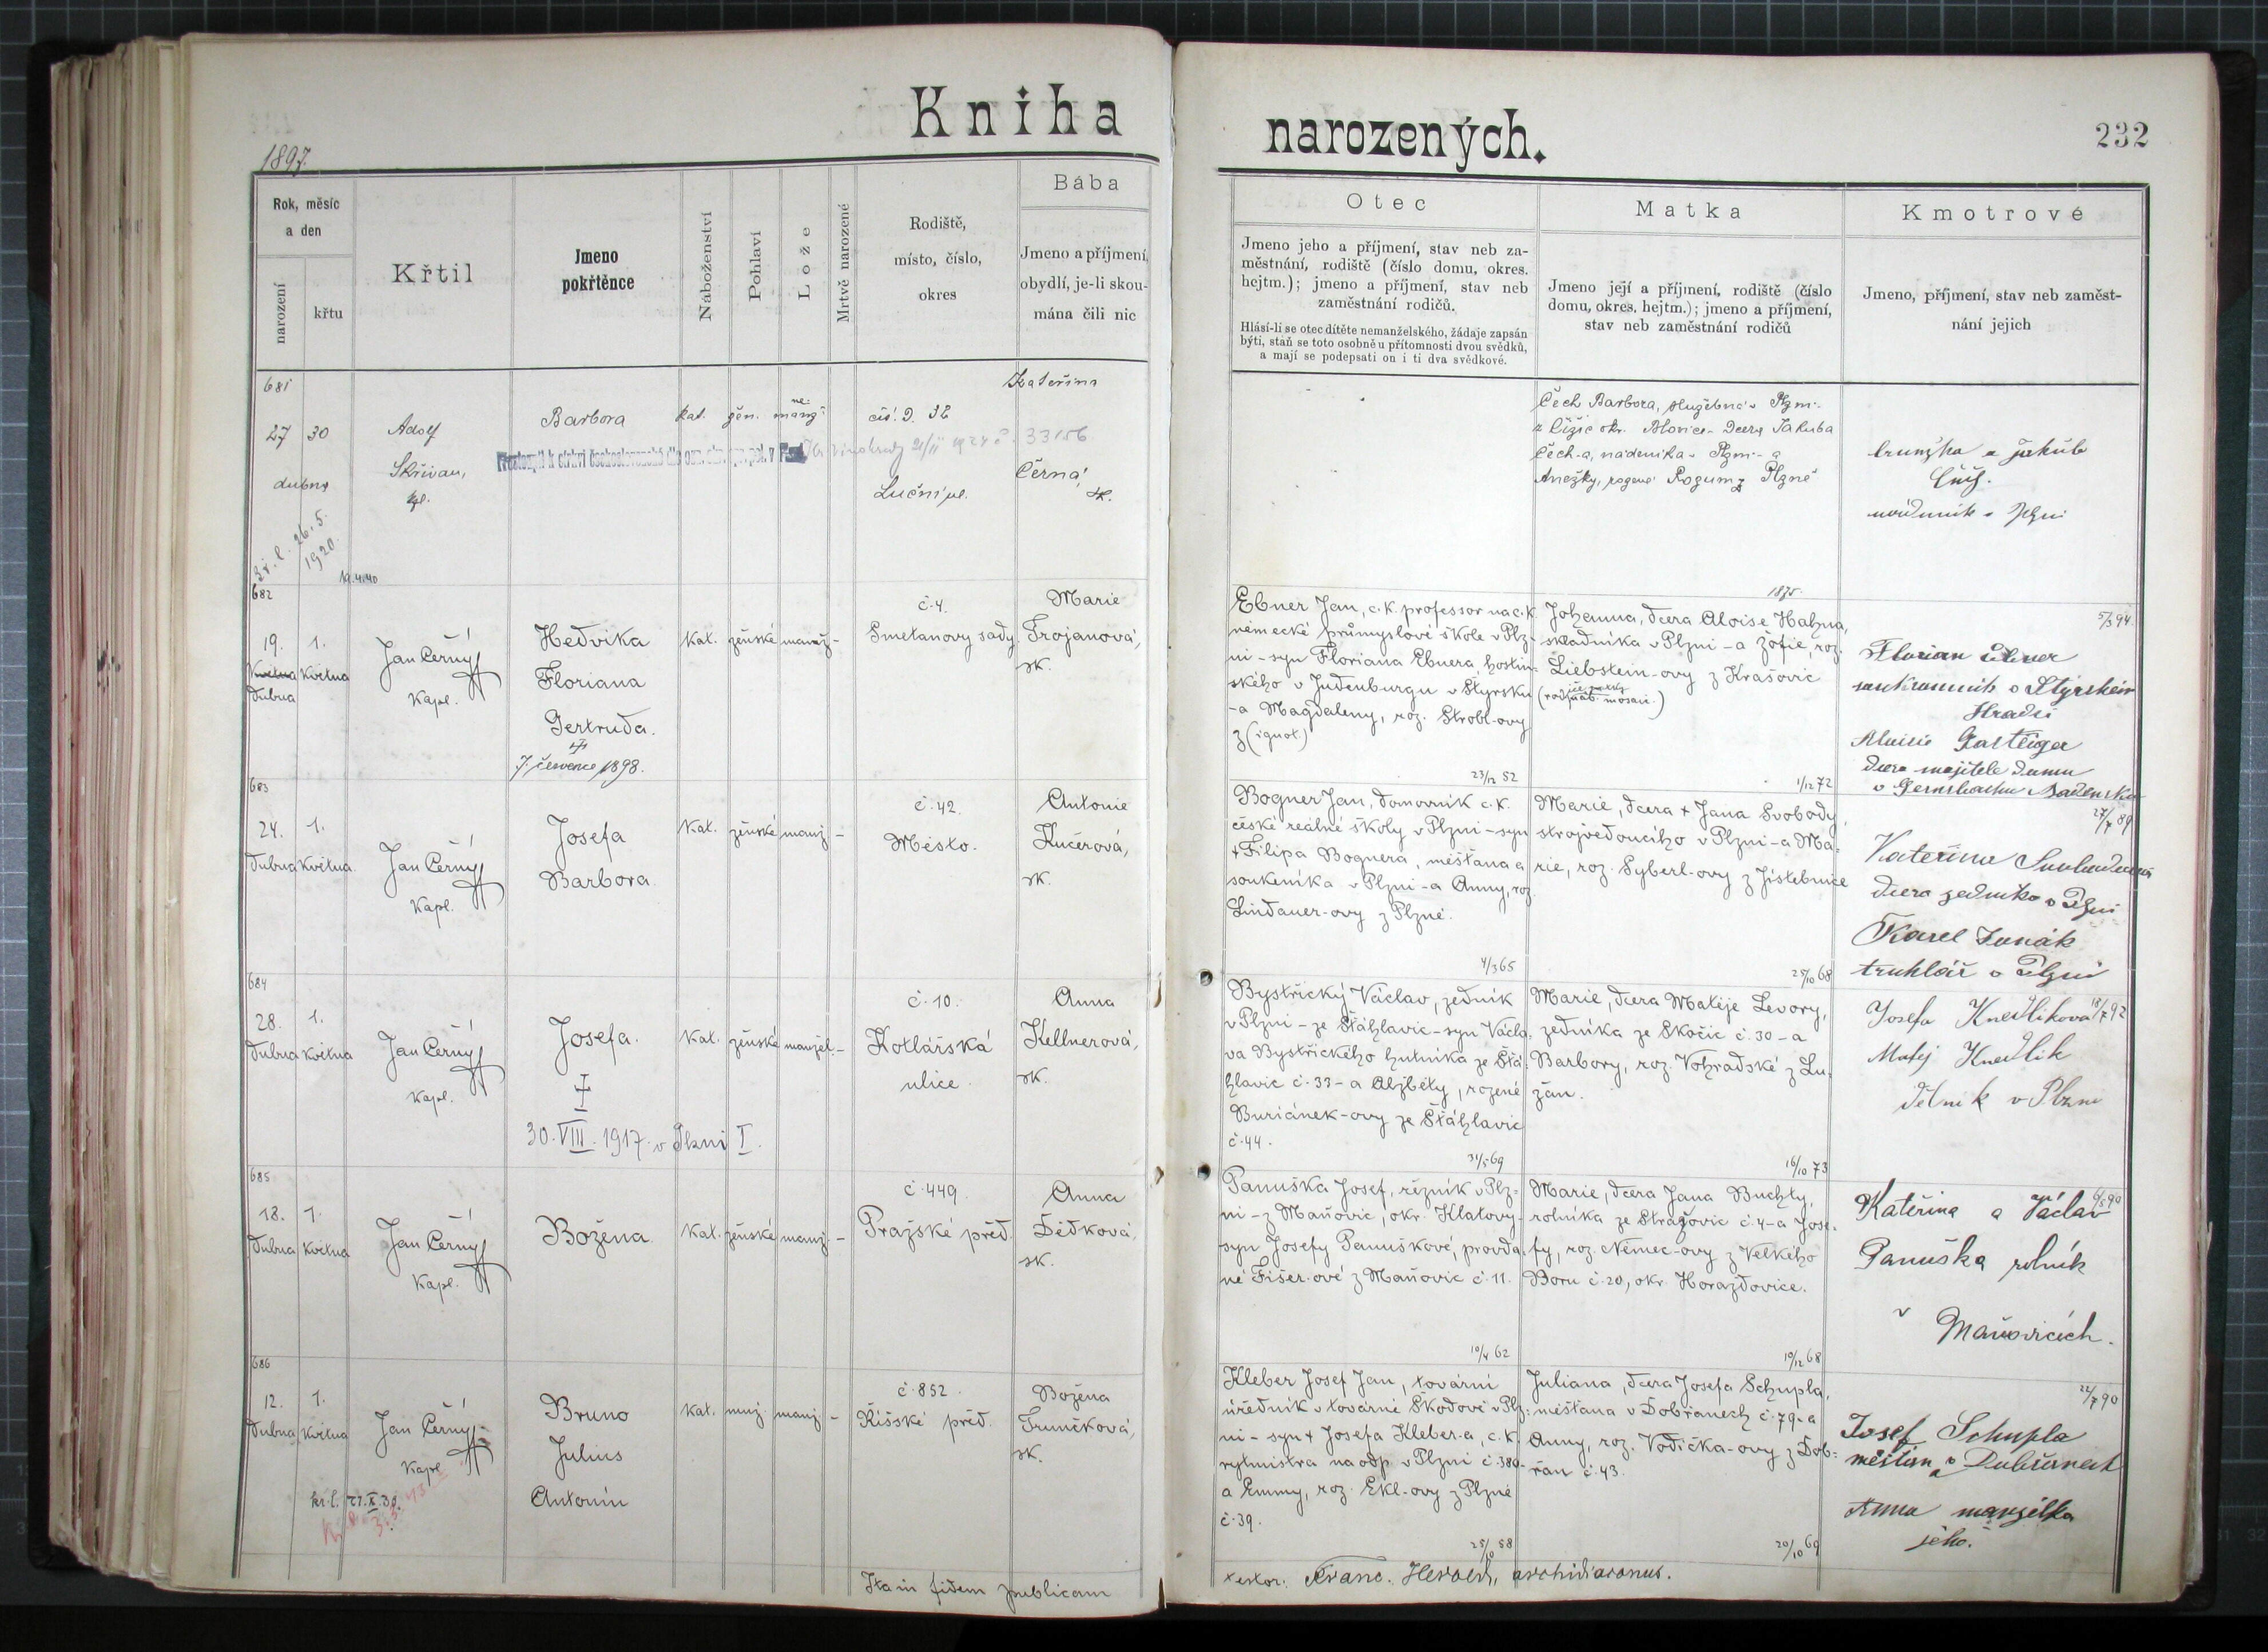 Kniha
narozených.
232
1897.
Rok, měsíc
a den
narození
křtu
Křtil
Jmeno
pokřtěnce
Náboženství
Pohlaví
Lože
Mrtvě narozené
Rodiště,
místo, číslo,
okres
Bába
Jmeno a příjmení,
obydlí, je-li skou-
mána čili nic
Otec
Jmeno jeho a příjmení, stav neb za-
městnání, rodiště (číslo domu, okres.
hejtm.); jmeno a příjmení, stav neb
zaměstnání rodičů.
Hlásí-li se otec dítěte nemanželského, žádaje zapsán
býti, staň se toto osobně u přítomnosti dvou svědků,
a mají se podepsati on i ti dva svědkové.
Matka
Jmeno její a příjmení, rodiště (číslo
domu, okres. hejtm.); jmeno a příjmení,
stav neb zaměstnání rodičů
Kmotrové
Jmeno, příjmení, stav neb zaměst-
nání jejich
681
27 30
dubna
26. 5.
1920.
Adolf
Skřivan,
kpl.
Barbora
kat. žen. manž.
ne-
čís. D. 32
Luční ul.
Kateřina
Černá,
33156
Čech Barbora, služebná v Plzni-
z Čižic okr. Blovice- Dcera Jakuba
Čech-a, nádeníka v Plzni- a
Anežky, rozené Rozum z Plzně
682
19. 1.
Května Května
Dubna
Jan Černý
Kapl.
Hedvika
Floriana
Gertruda.
7. července 1898.
Kat. ženské manž. -
č. 4.
Smetanovy sady.
Marie
Trojanová,
sk.
Ebner Jan, c. k. professor na c. k.
německé průmyslové škole v Plz-
ni - syn Floriana Ebnera hostin-
ského v Judenburgu v Štyrsku
-a Magdaleny, roz. Strobl-ovy
z (ignot)
1875.
Johanna, dcera Aloise Hahna,
skladníka v Plzni - a Žofie, roz.
Liebstein-ovy z Krašovic
5/3 94.
Florian Ebner
soukromník v Štyrském
Hradci
Aloisie Gasteiger
dcera majitele domu
683
24. 1.
Dubna Května
Jan Černý
Kapl.
Josefa
Barbora.
Kat. ženské manž. -
č. 42.
Město.
Antonie
Kučerová,
sk.
23/12 52
Bogner Jan, domovník c. k.
české reálné školy v Plzni - syn
+ Filipa Bognera, měšťana a
soukeníka v Plzni - a Anny, roz.
Lindauer-ovy z Plzně.
1/12 72
Marie, dcera + Jana Svobody,
strojvedoucího v Plzni - a Ma-
rie, roz. Syberl-ovy z Jistebnice
27/7 89
Kateřina Svobodová
dcera zedníka v Plzni
Karel
truhlář v Plzni
684
28. 1.
Dubna Května
Jan Černý
Kapl.
Josefa.
30. VIII. 1917. v Plzni I.
Kat. ženské manžel. -
č. 10.
Kotlářská
ulice.
Anna
Kellnerová,
sk.
4/3 65
Bystřický Václav, zedník
v Plzni - ze Šťáhlavic - syn Václa-
va Bystřického hutníka ze Šťá-
hlavic č. 33 - a Alžběty, rozené
Buriánek-ovy ze Šťáhlavic
č. 44.
25/10 68
Marie, dcera Matěje Levory,
zedníka ze Skočic č. 30 - a
Barbory, roz. Vohradské z Lu-
žan.
18/7 92
Josefa Knedlíková
Matěj Knedlík
dělník v Plzni
685
18. 1.
Dubna Května
Jan Černý
Kapl.
Božena.
Kat. ženské manž. -
č. 449.
Pražské před.
Anna
Dědková,
sk.
31/5 69
Panuška Josef, řezník v Plz-
ni - z Maňovic, okr. Klatovy -
syn Josefy Panuškové, provda-
né Fišer-ové z Maňovic č. 11.
16/10 73
Marie, dcera Jana Buchty,
rolníka ze Stražovic č. 4 - a Jose-
fy, roz. Němec-ovy z Velkého
Boru č. 20, okr. Horažďovice.
Kateřina a Václav
Panuška rolník
v
Maňovicích.
686
12. 1.
Dubna Května
kř. l.
Jan Černý
Kapl.
Bruno
Julius
Antonín
Kat. muž. manž. -
č. 852.
Říšské před.
Božena
Trunečková,
sk.
10/4 62
Kleber Josef Jan, tovární
úředník v továrně Škodově v Plz-
ni - syn + Josefa Kleber-a, c. k.
rytmistra na odp. v Plzni č. 380 -
a Emmy, roz. Ekl-ovy z Plzně
č. 39.
10/12 68
Juliana, dcera Josefa Schupla,
měšťana v Dobřanech č. 79 - a
Anny, roz. Vodička-ovy z Dob-
řan č. 43.
22/7 90
Josef Schupla
měšťan v Dobřanech
a
Anna manželka
jeho.
20/10 69
Ita in fidem publicam
testor: Franc. Herold, archidiaconus.